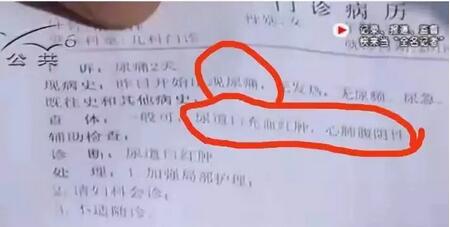 门诊病历
性别：女
科室：儿科门诊
记录、报道、监督
快来当“全名记者”
公共
诉：尿痛2天
现病史：昨日开始出现尿痛，无发热，无尿频、尿急
既往史和其他病史：
查体：一般可，尿道口充血红肿，心肺腹阴性
辅助检查：
诊断：尿道口红肿
处理：1.加强局部护理，
2.请妇科会诊，
3.不适随诊